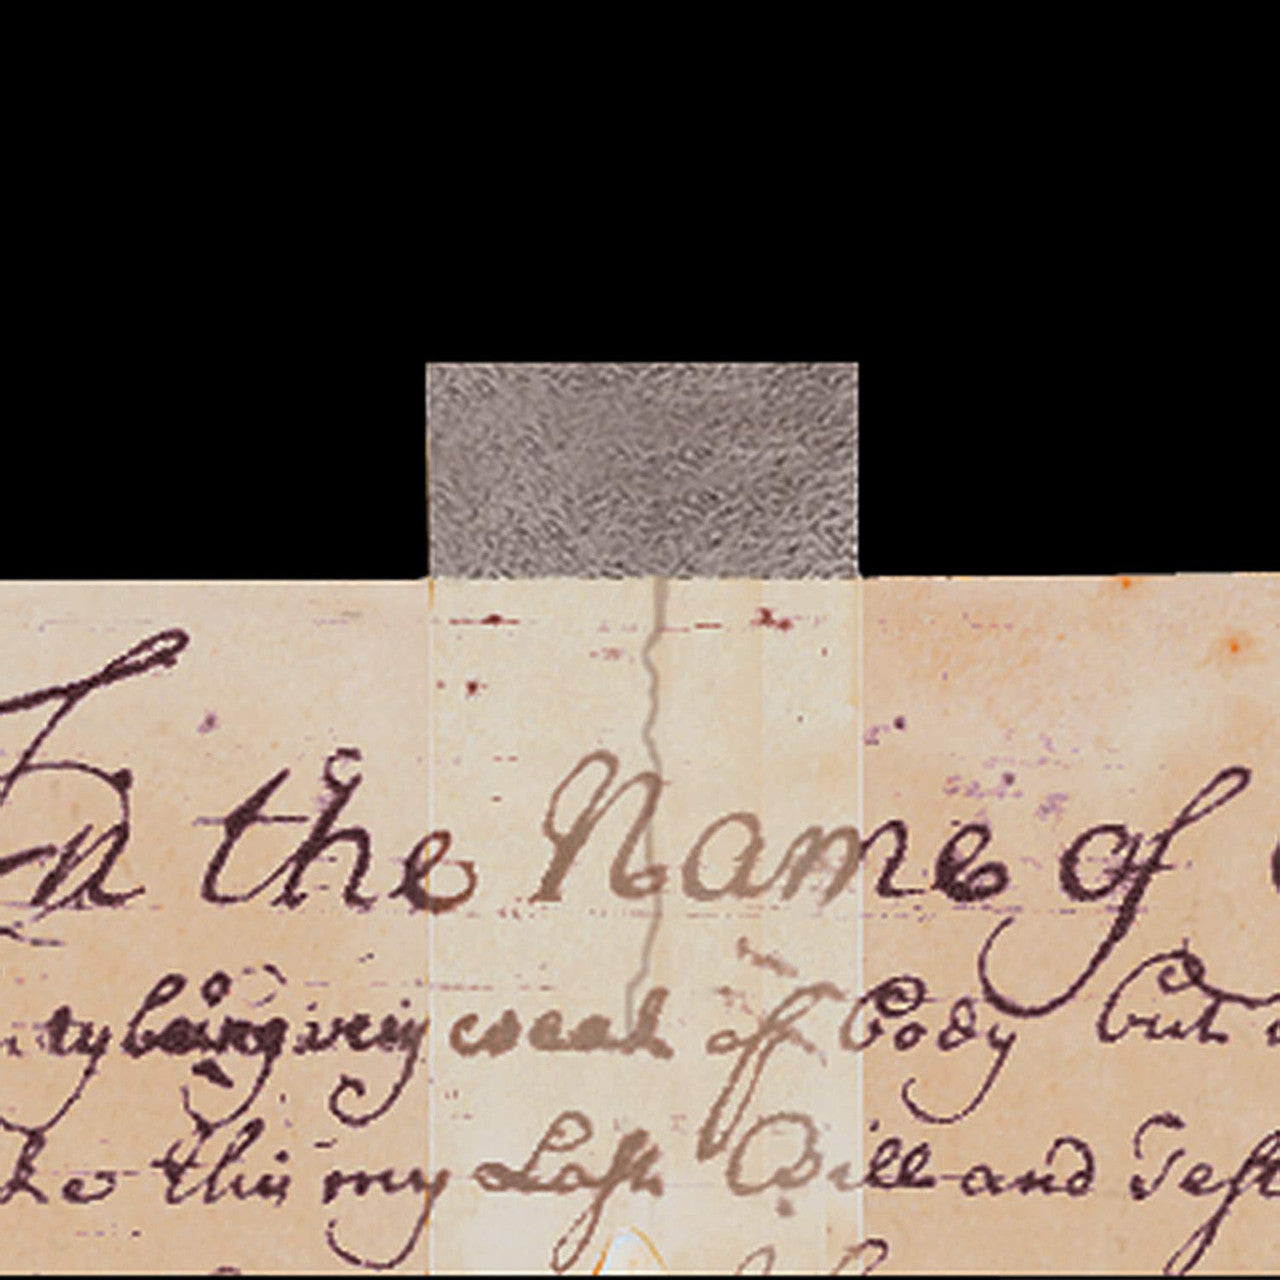 In the Name of
ty being very weak off Body but
this my Last Will and Test